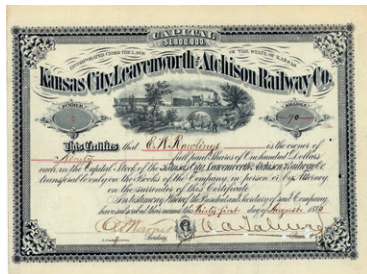 CAPITAL
$1,800,000.
INCORPORATED UNDER THE LAWS OF THE STATE OF KANSAS
Kansas City, Leavenworth and Atchison Railway Co.
NUMBER
SHARES
90
This Certifies that E. N. Rawlings is the owner of
Ninety full paid Shares of One hundred Dollars
each, in the Capital Stock of the Kansas City, Leavenworth and Atchison Railway Co.
transferable only on the Books of the Company, in person or by Attorney
on the surrender of this Certificate.
In testimony Whereof the President and Secretary of said Company
have set their names this thirty first day of August